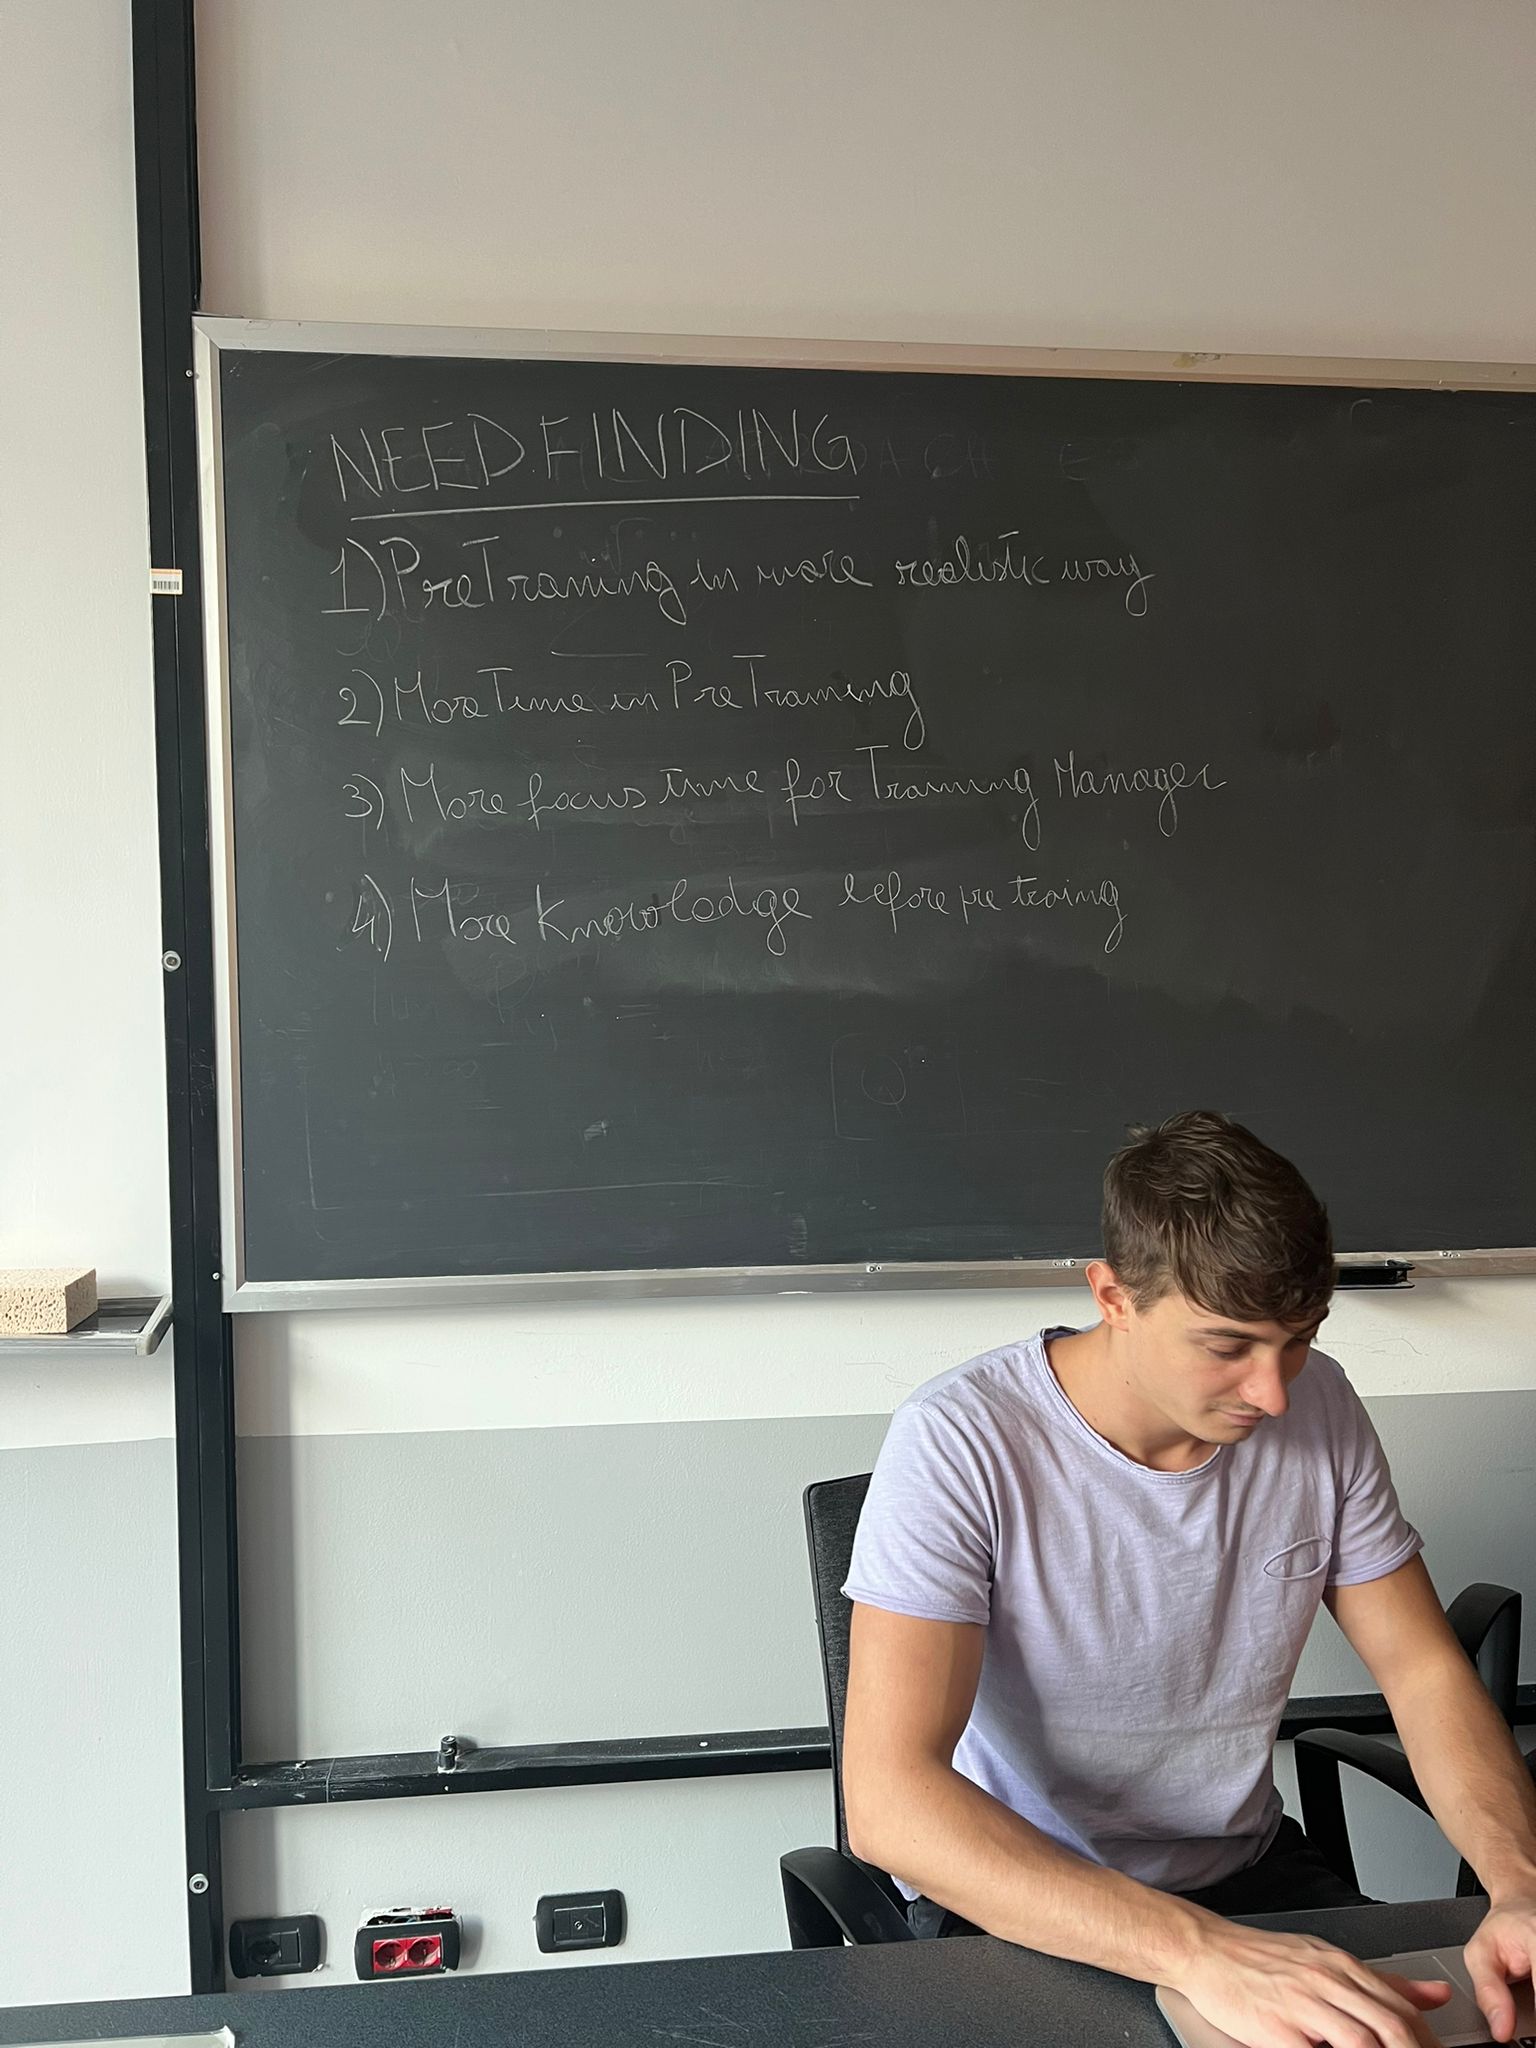 NEEDFINDING
1) PreTraining in more realistic way
2) More Time in PreTraining
3) More focus time for Training Manager
4) More Knowledge before pre traing